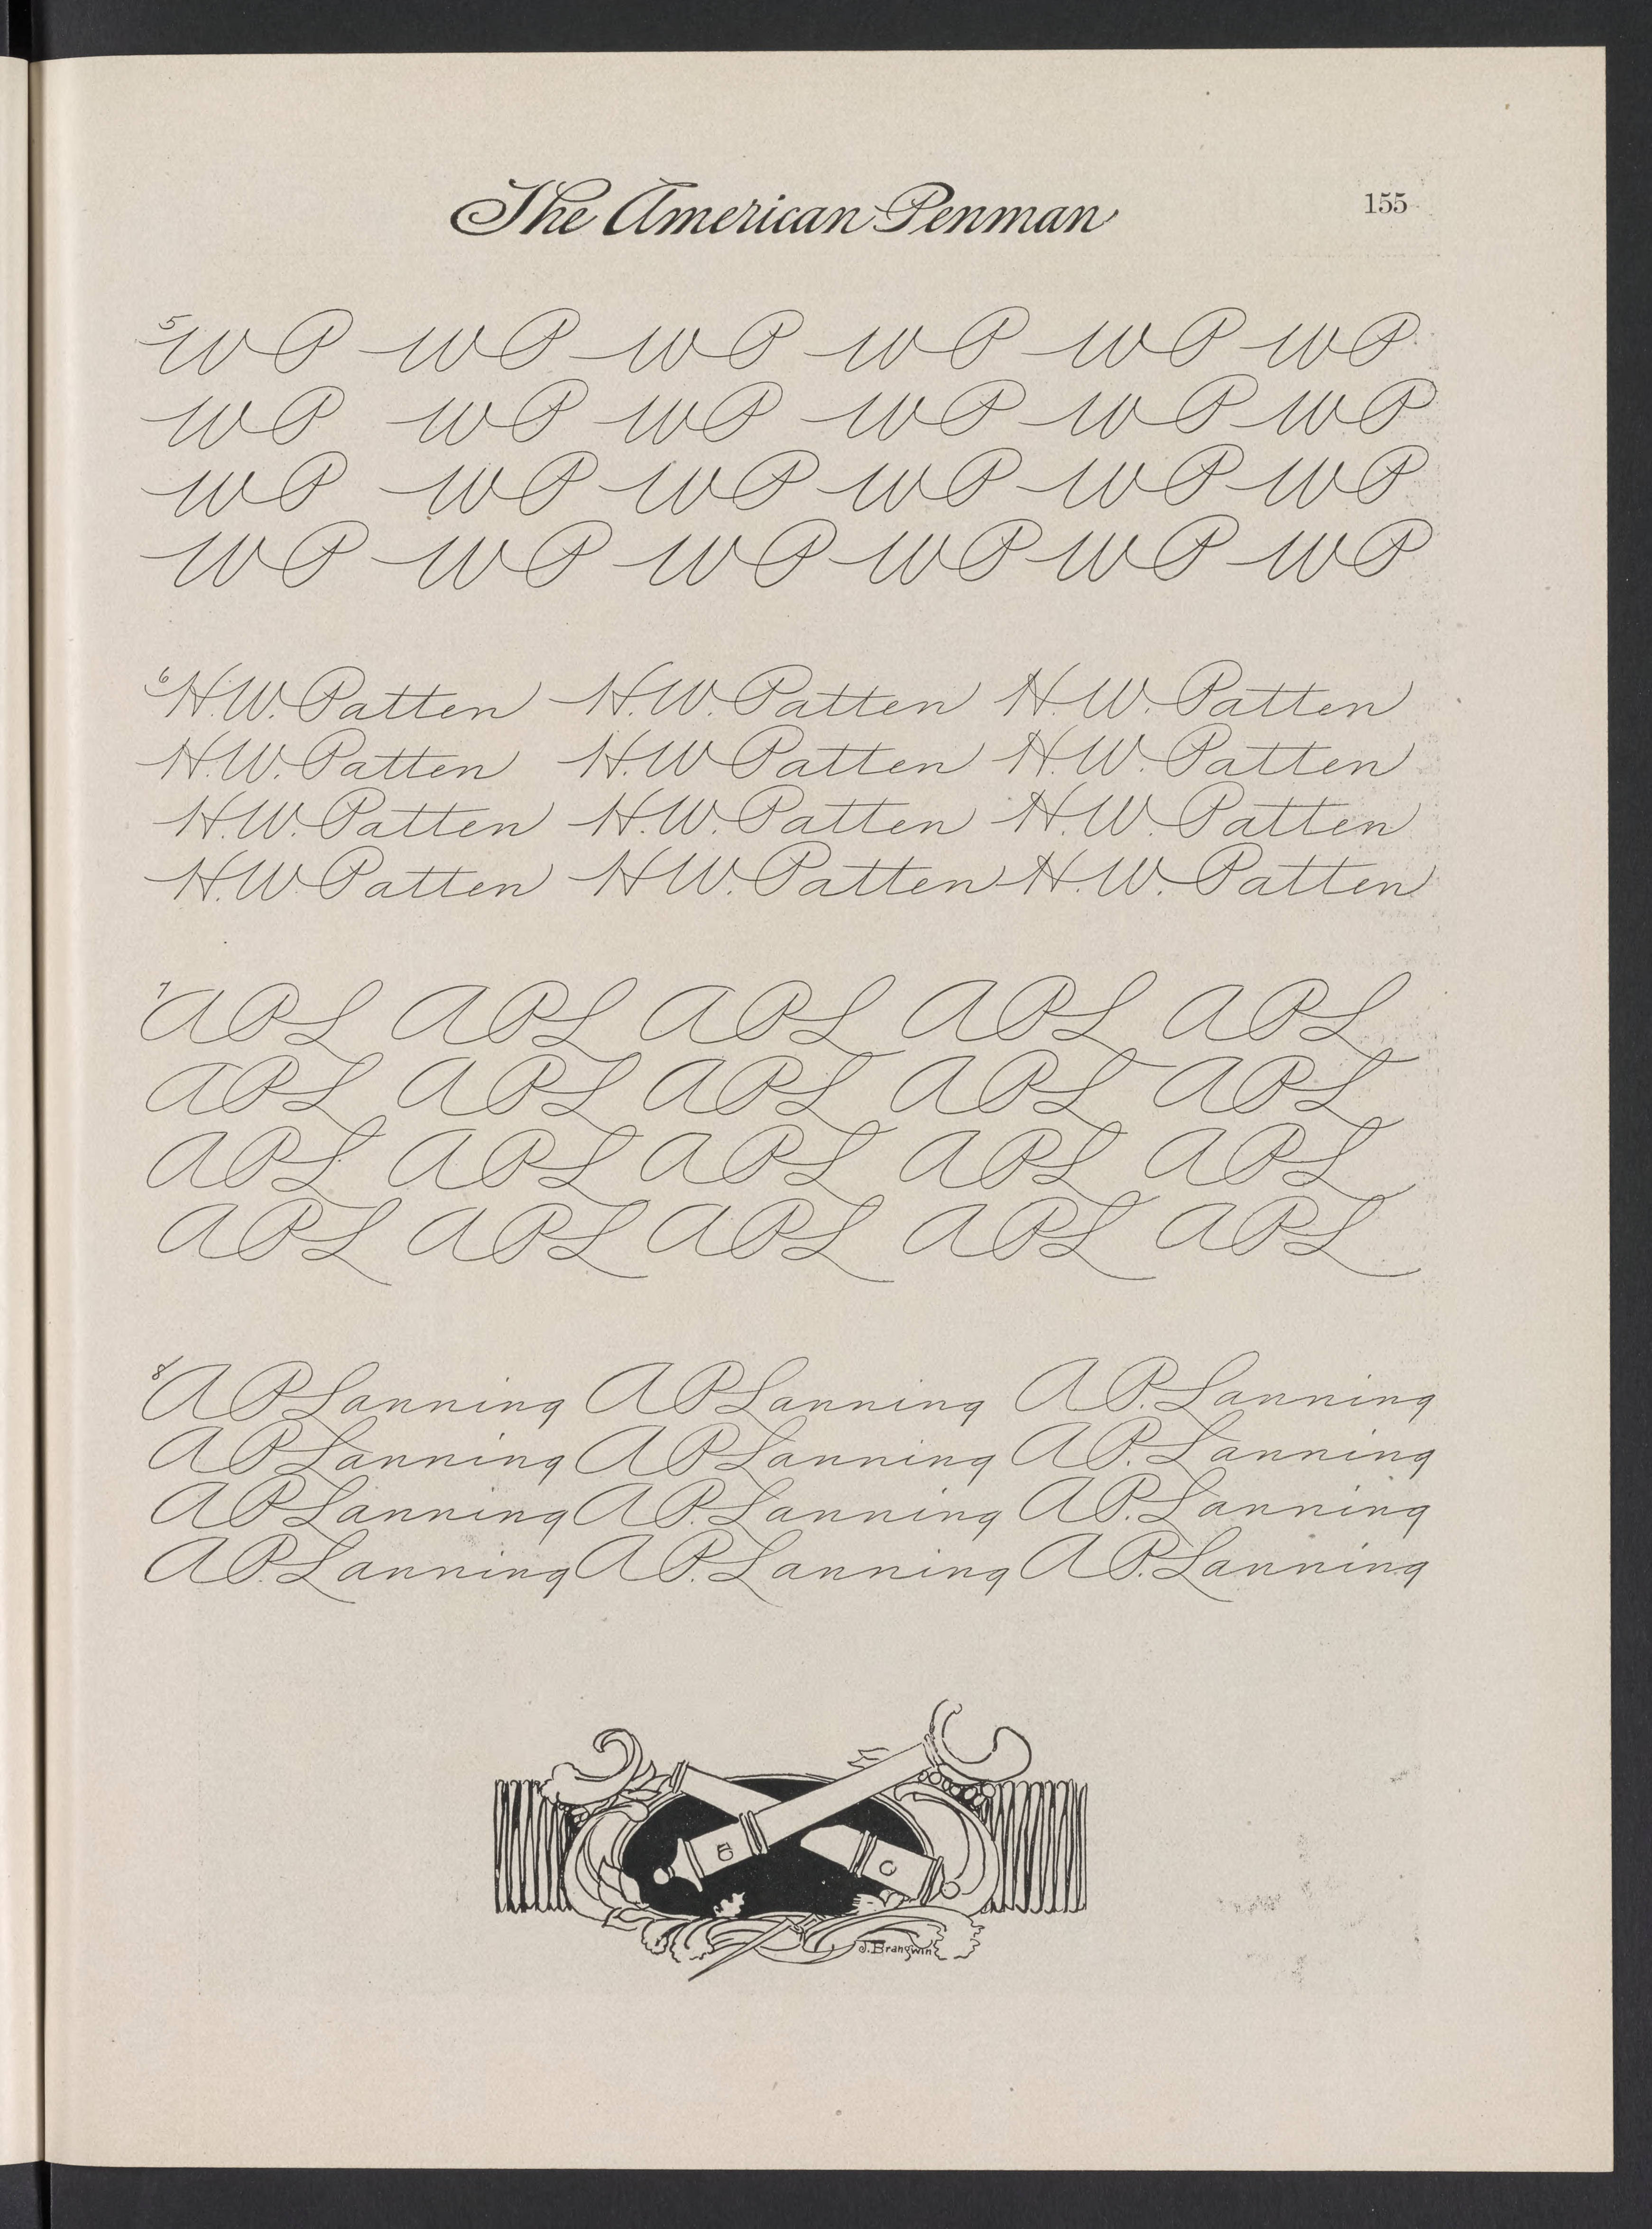 The American Penman
155
5 WP WP WP WP WP WP
WP WP WP WP WP WP
WP WP WP WP WP WP
WP WP WP WP WP WP
6 H.W. Patten H.W. Patten H.W. Patten
H.W. Patten H.W Patten H.W. Patten
H.W. Patten H.W. Patten H.W. Patten
H.W Patten H.W. Patten H.W. Patten
7 APL APL APL APL APL
APL APL APL APL APL
APL APL APL APL APL
APL APL APL APL APL
8 A P Lanning A P Lanning A P. Lanning
A P Lanning A P Lanning A P. Lanning
A P Lanning A P. Lanning A P. Lanning
A P. Lanning A P. Lanning A P. Lanning
B C
J. Brangwin